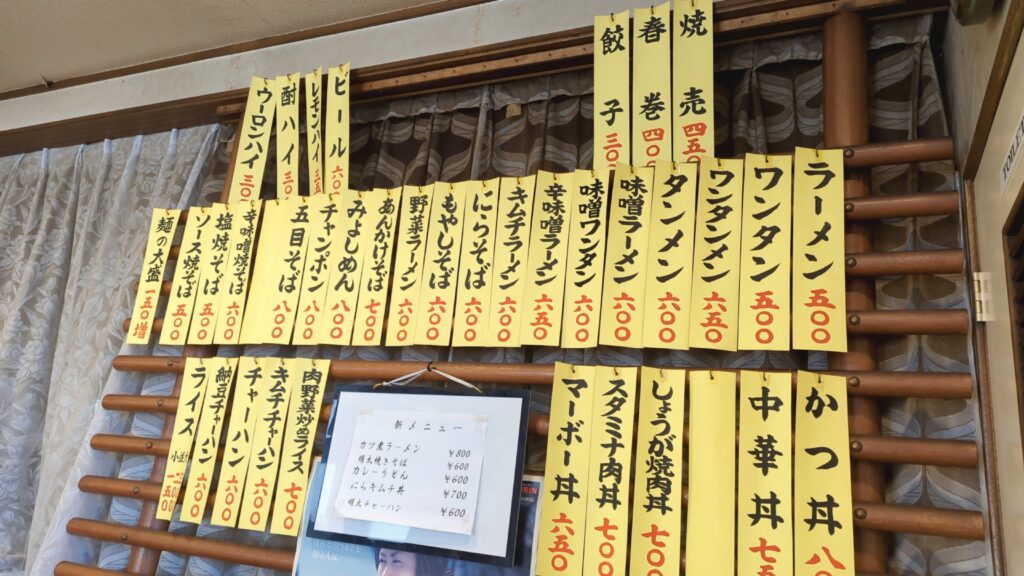 焼売 四五〇
春巻 四〇〇
餃子 三〇〇
ビール 六〇
レモンハイ 三五
酎ハイ 三〇
ウーロンハイ 三〇
ラーメン 五〇〇
ワンタン 五〇〇
ワンタンメン 六五〇
タンメン 六〇〇
味噌ラーメン 六〇〇
味噌ワンタン 六〇〇
辛味噌ラーメン 六五〇
キムチラーメン 六〇〇
にらそば 六〇〇
もやしそば 六〇〇
野菜ラーメン 六〇〇
あんかけそば 七〇〇
みよしめん 八〇〇
チャンポン 八〇〇
五目そば 八〇〇
辛味噌焼そば 六〇〇
塩焼そば 五〇〇
ソース焼そば 五〇〇
麺の大盛 一五〇増
かつ丼 八〇
中華丼 七五
しょうが焼肉丼 七〇〇
スタミナ肉丼 七〇〇
マーボー丼 六五〇
肉野菜炒めライス 七〇〇
キムチチャーハン 六〇〇
チャーハン 六〇〇
納豆チャーハン 六〇〇
ライス
新メニュー
カツ煮ラーメン ¥800
明太焼きそば ¥600
カレーうどん ¥600
にらキムチ丼 ¥700
明太チャーハン ¥600